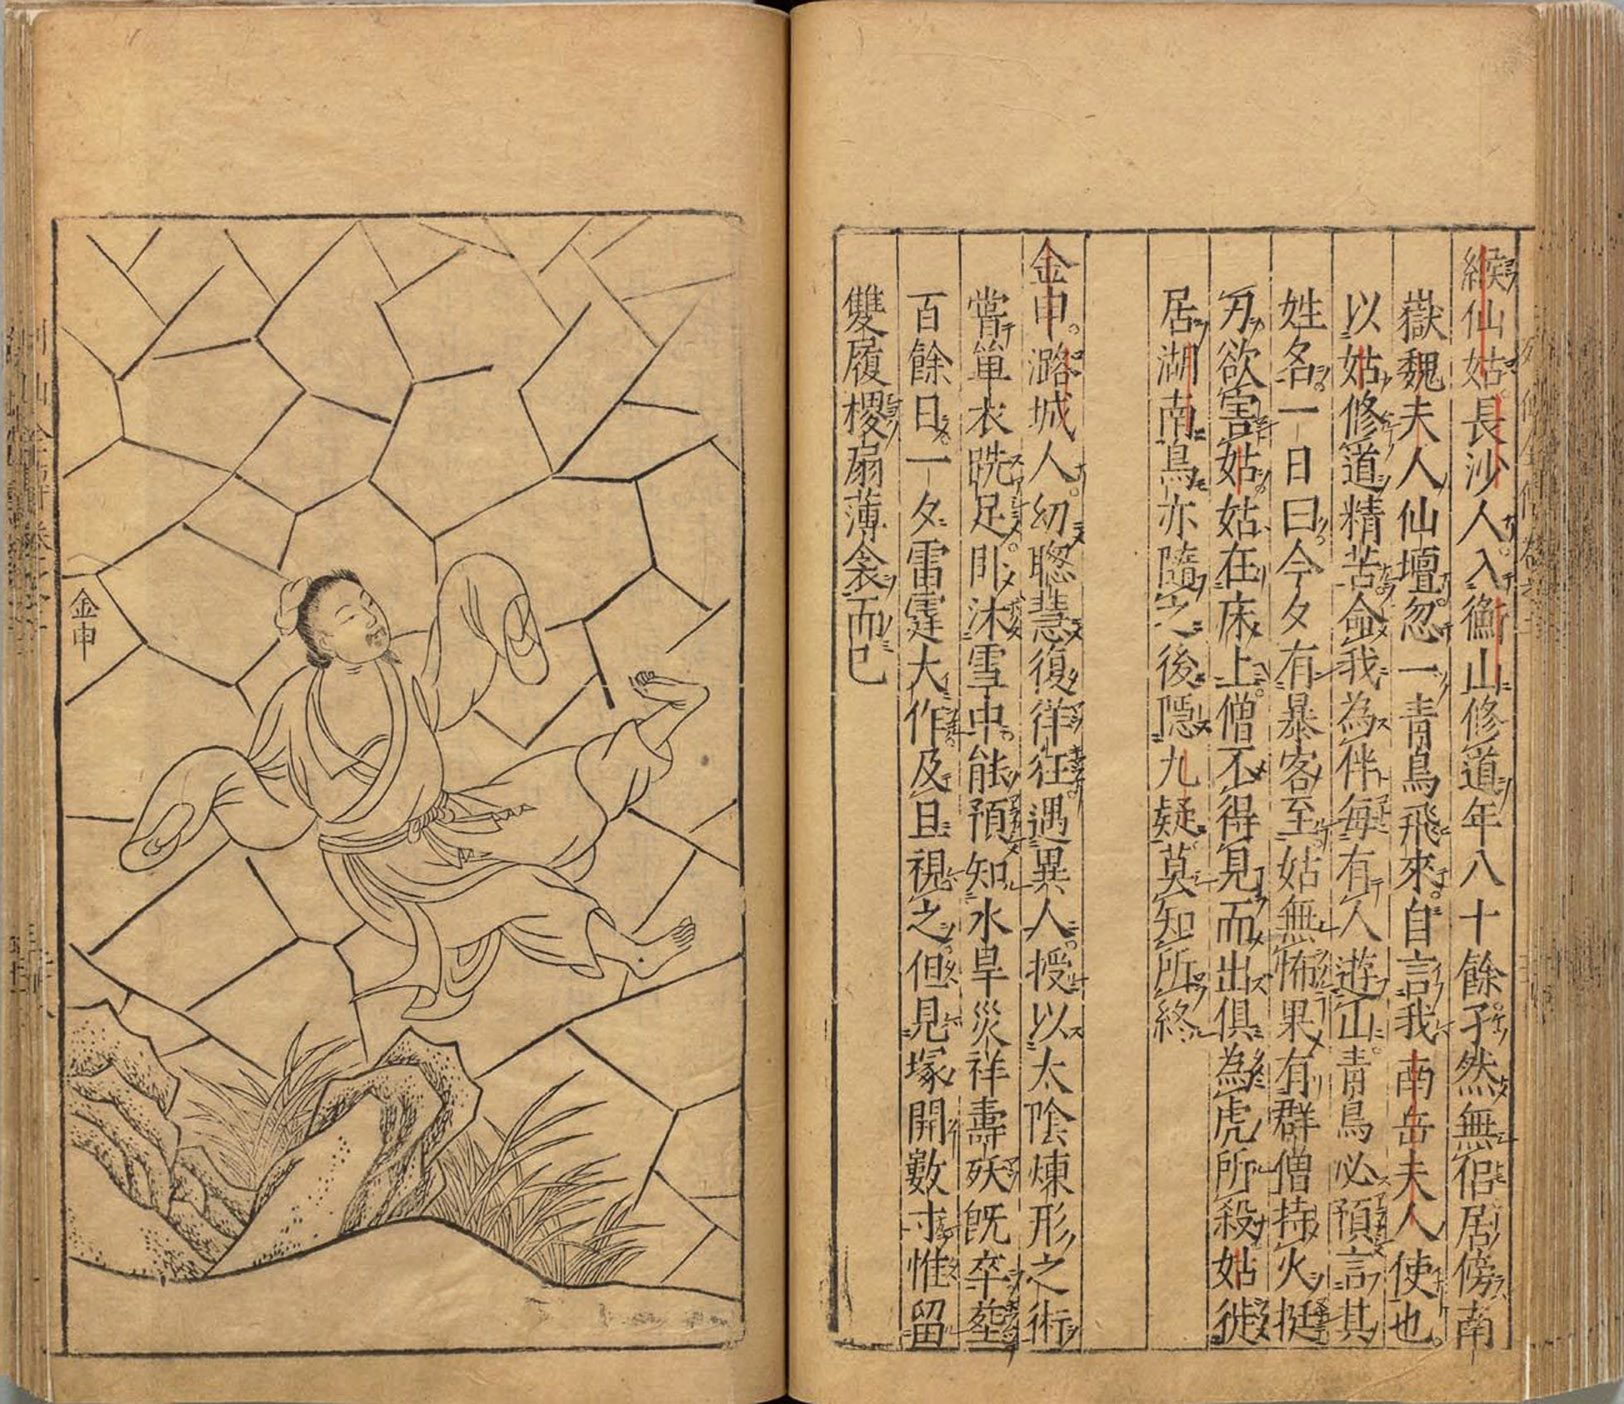 緱仙姑長沙人入衡山修道年八十餘孑然無侶居傍南
嶽魏夫人仙壇忽一青鳥飛來自言我南岳夫人使也
以姑修道精苦命我為伴每有人遊山青鳥必預言其
姓名一日曰今夕有暴客至姑無怖果有群僧持火挺
刃欲害姑姑在床上僧不得見而出俱為虎所殺姑徙
居湖南鳥亦隨之後隱九疑莫知所終
金申潞城人幼聰慧復徉狂遇異人授以太陰煉形之術
嘗単衣跣足卧沐雪中能預知水旱災祥壽殀既卒塟
百餘日一夕雷霆大作及且視之但見塚開數寸惟留
雙履椶扇薄衾而已
金申